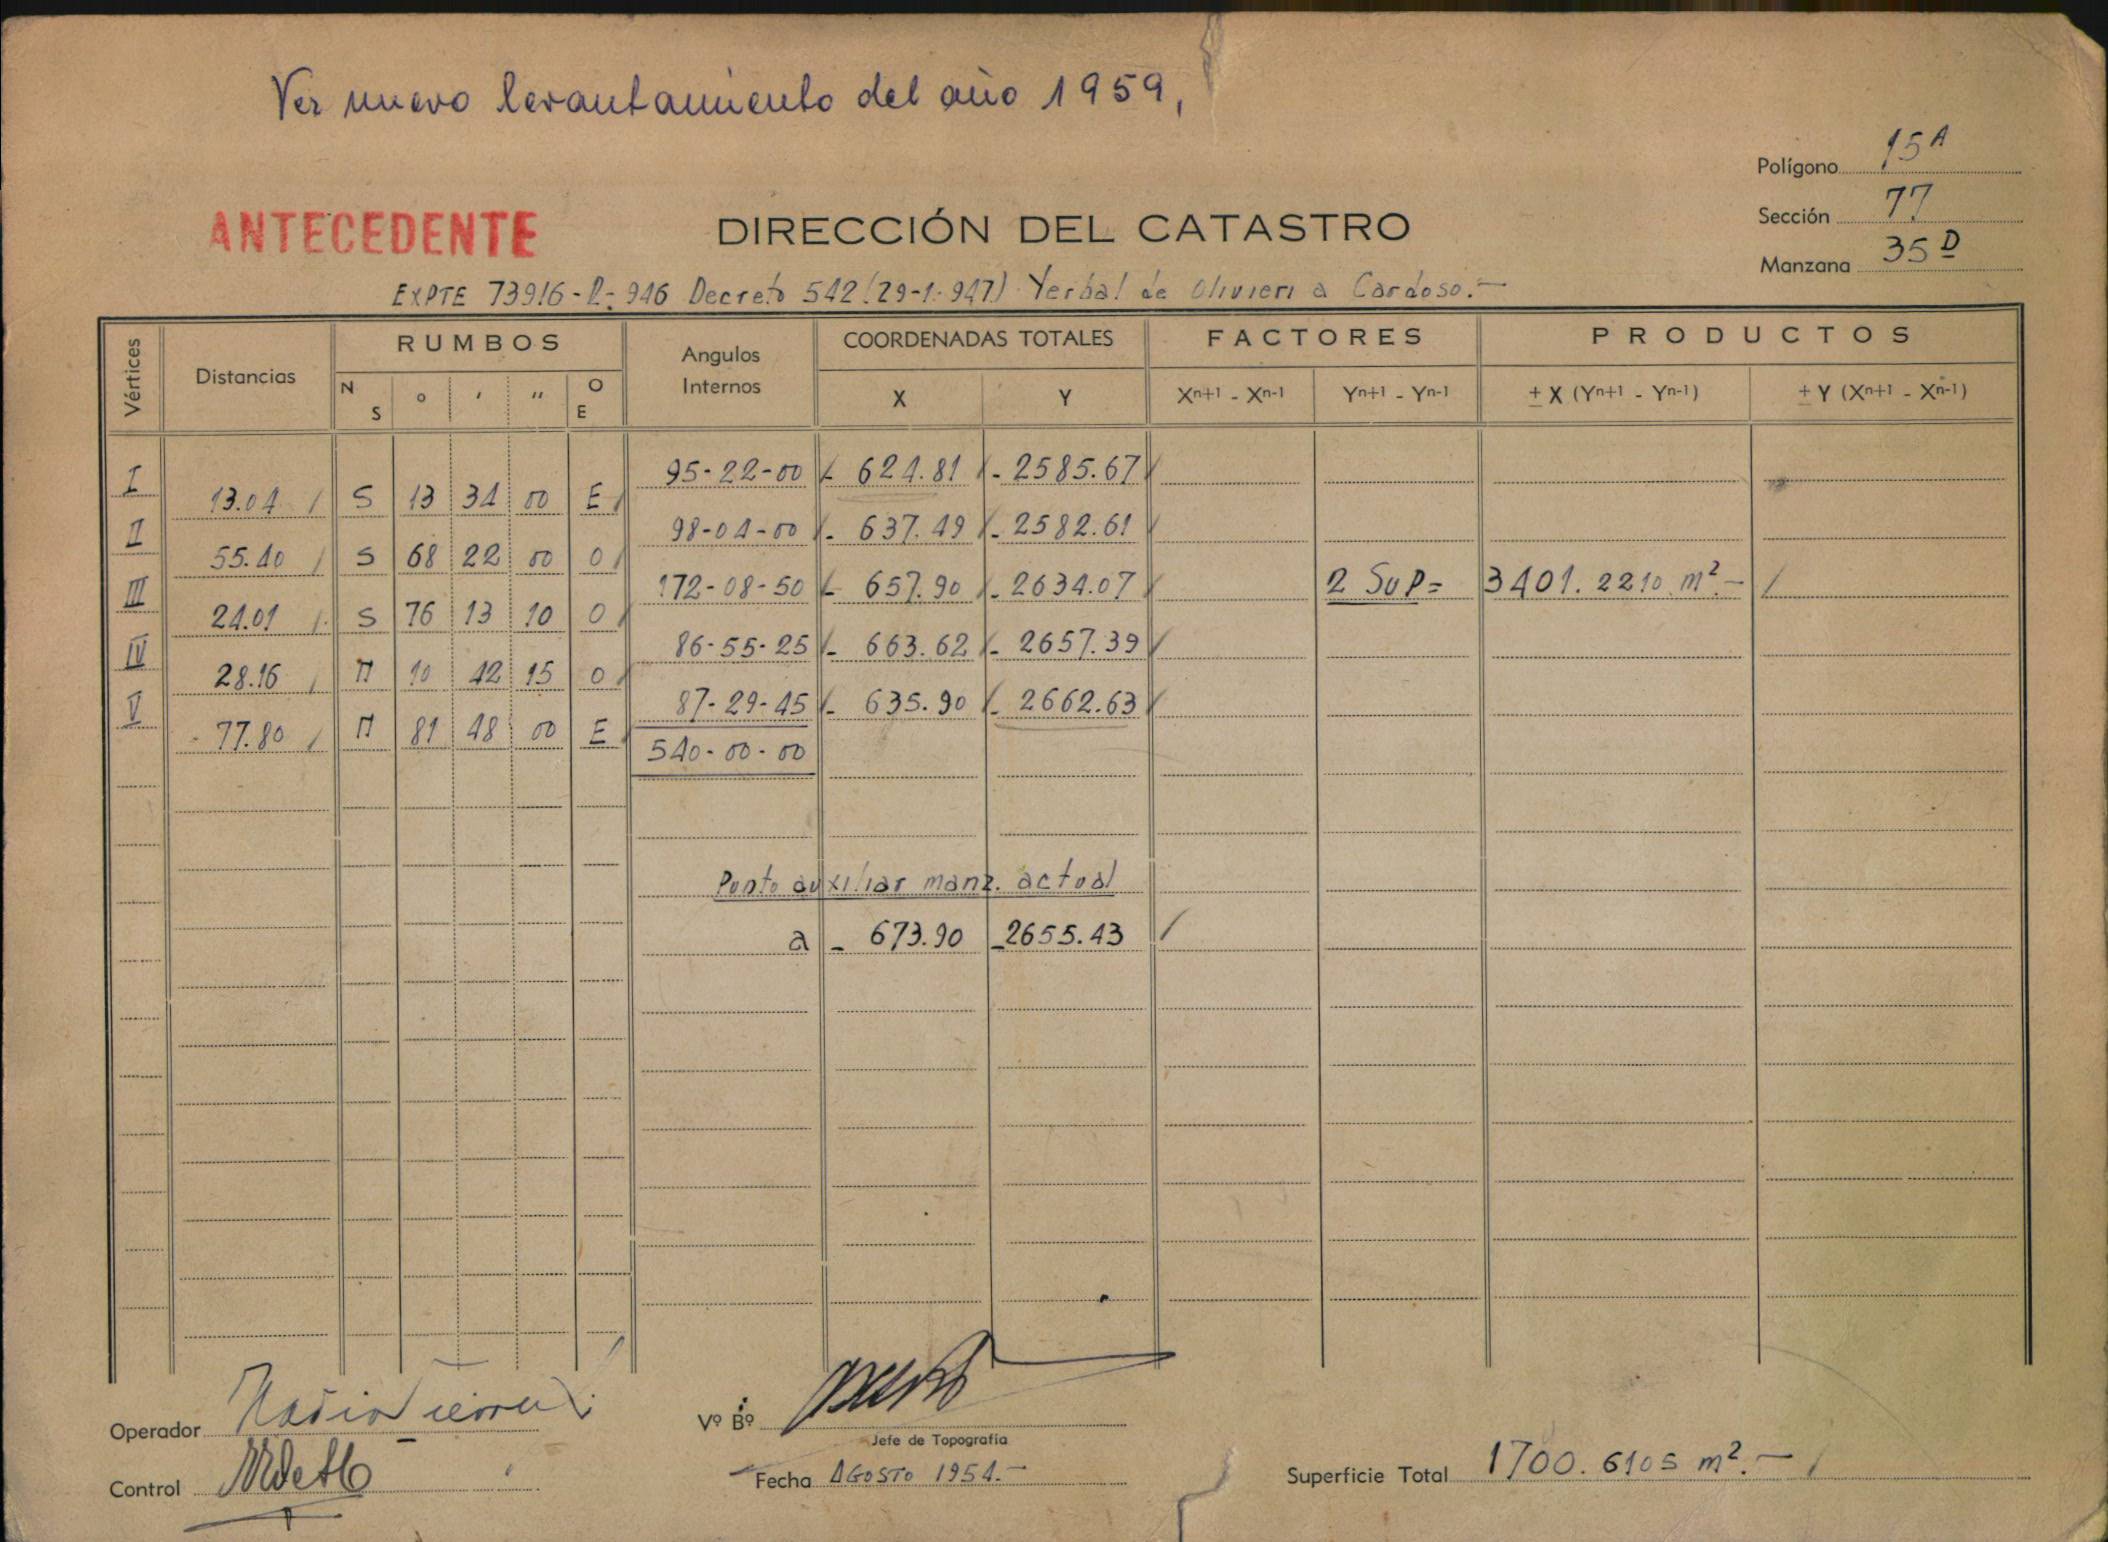 Ver nuevo levantamiento del año 1959,
Polígono 15A
Sección 77
Manzana 35D
ANTECEDENTE
DIRECCIÓN DEL CATASTRO
EXPTE 73916-P-946 Decreto 542 (29-1-947) Yerbal de Olivieri a Cardoso.-
Vértices Distancias RUMBOS Angulos Internos COORDENADAS TOTALES FACTORES PRODUCTOS
N S ° ' " O E X Y Xn+1 - Xn-1 Yn+1 - Yn-1 ± X (Yn+1 - Yn-1) ± Y (Xn+1 - Xn-1)
I 95-22-00 - 624.81 - 2585.67
13.04 S 13 34 00 E
II 98-04-00 - 637.49 - 2582.61
55.40 S 68 22 00 O
III 172-08-50 - 657.90 - 2634.07 2 SUP= 3401.2210 m².-
24.01 S 76 13 10 O
IV 86-55-25 - 663.62 - 2657.39
28.16 N 10 42 15 O
V 87-29-45 - 635.90 - 2662.63
77.80 N 81 48 00 E
540-00-00
Punto auxiliar manz. actual
a - 673.90 -2655.43
Operador
Vº Bº
Jefe de Topografía
Control
Fecha AGOSTO 1954.-
Superficie Total 1700.6105 m².-